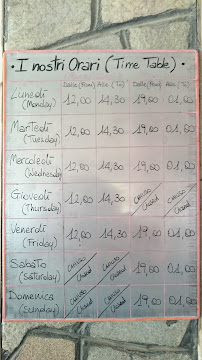 • I nostri Orari (Time Table) •
Dalle (From) Alle (To) Dalle (From) Alle (To)
Lunedì 12,00 14,30 19,00 01,00
(Monday)
Martedì 12,00 14,30 19,00 01,00
(Tuesday)
Mercoledì 12,00 14,30 19,00 01,00
(Wednesday)
Giovedì 12,00 14,30 CHIUSO CHIUSO
(Thursday) Closed Closed
Venerdì 12,00 14,30 19,00 01,00
(Friday)
Sabato CHIUSO CHIUSO 19,00 01,00
(Saturday) Closed Closed
Domenica CHIUSO CHIUSO 19,00 01,00
(Sunday) Closed Closed